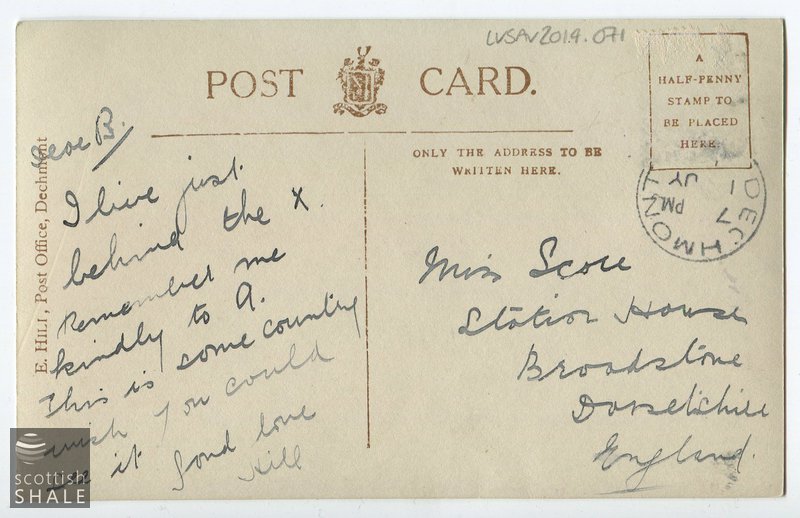 LVSAV2019.071
POST CARD.
A
HALF-PENNY
STAMP TO
BE PLACED
HERE.
ONLY THE ADDRESS TO BE
WRITTEN HERE.
DECHMONT
PM
JY
E. HILL, Post Office, Dechmont
B.
I live just
behind the x.
Remember me
kindly to A.
This is some country
wish you could
see it fond love
Hill
Miss Score
Station House
Broadstone
Dorsetshire
England.
scottish
SHALE